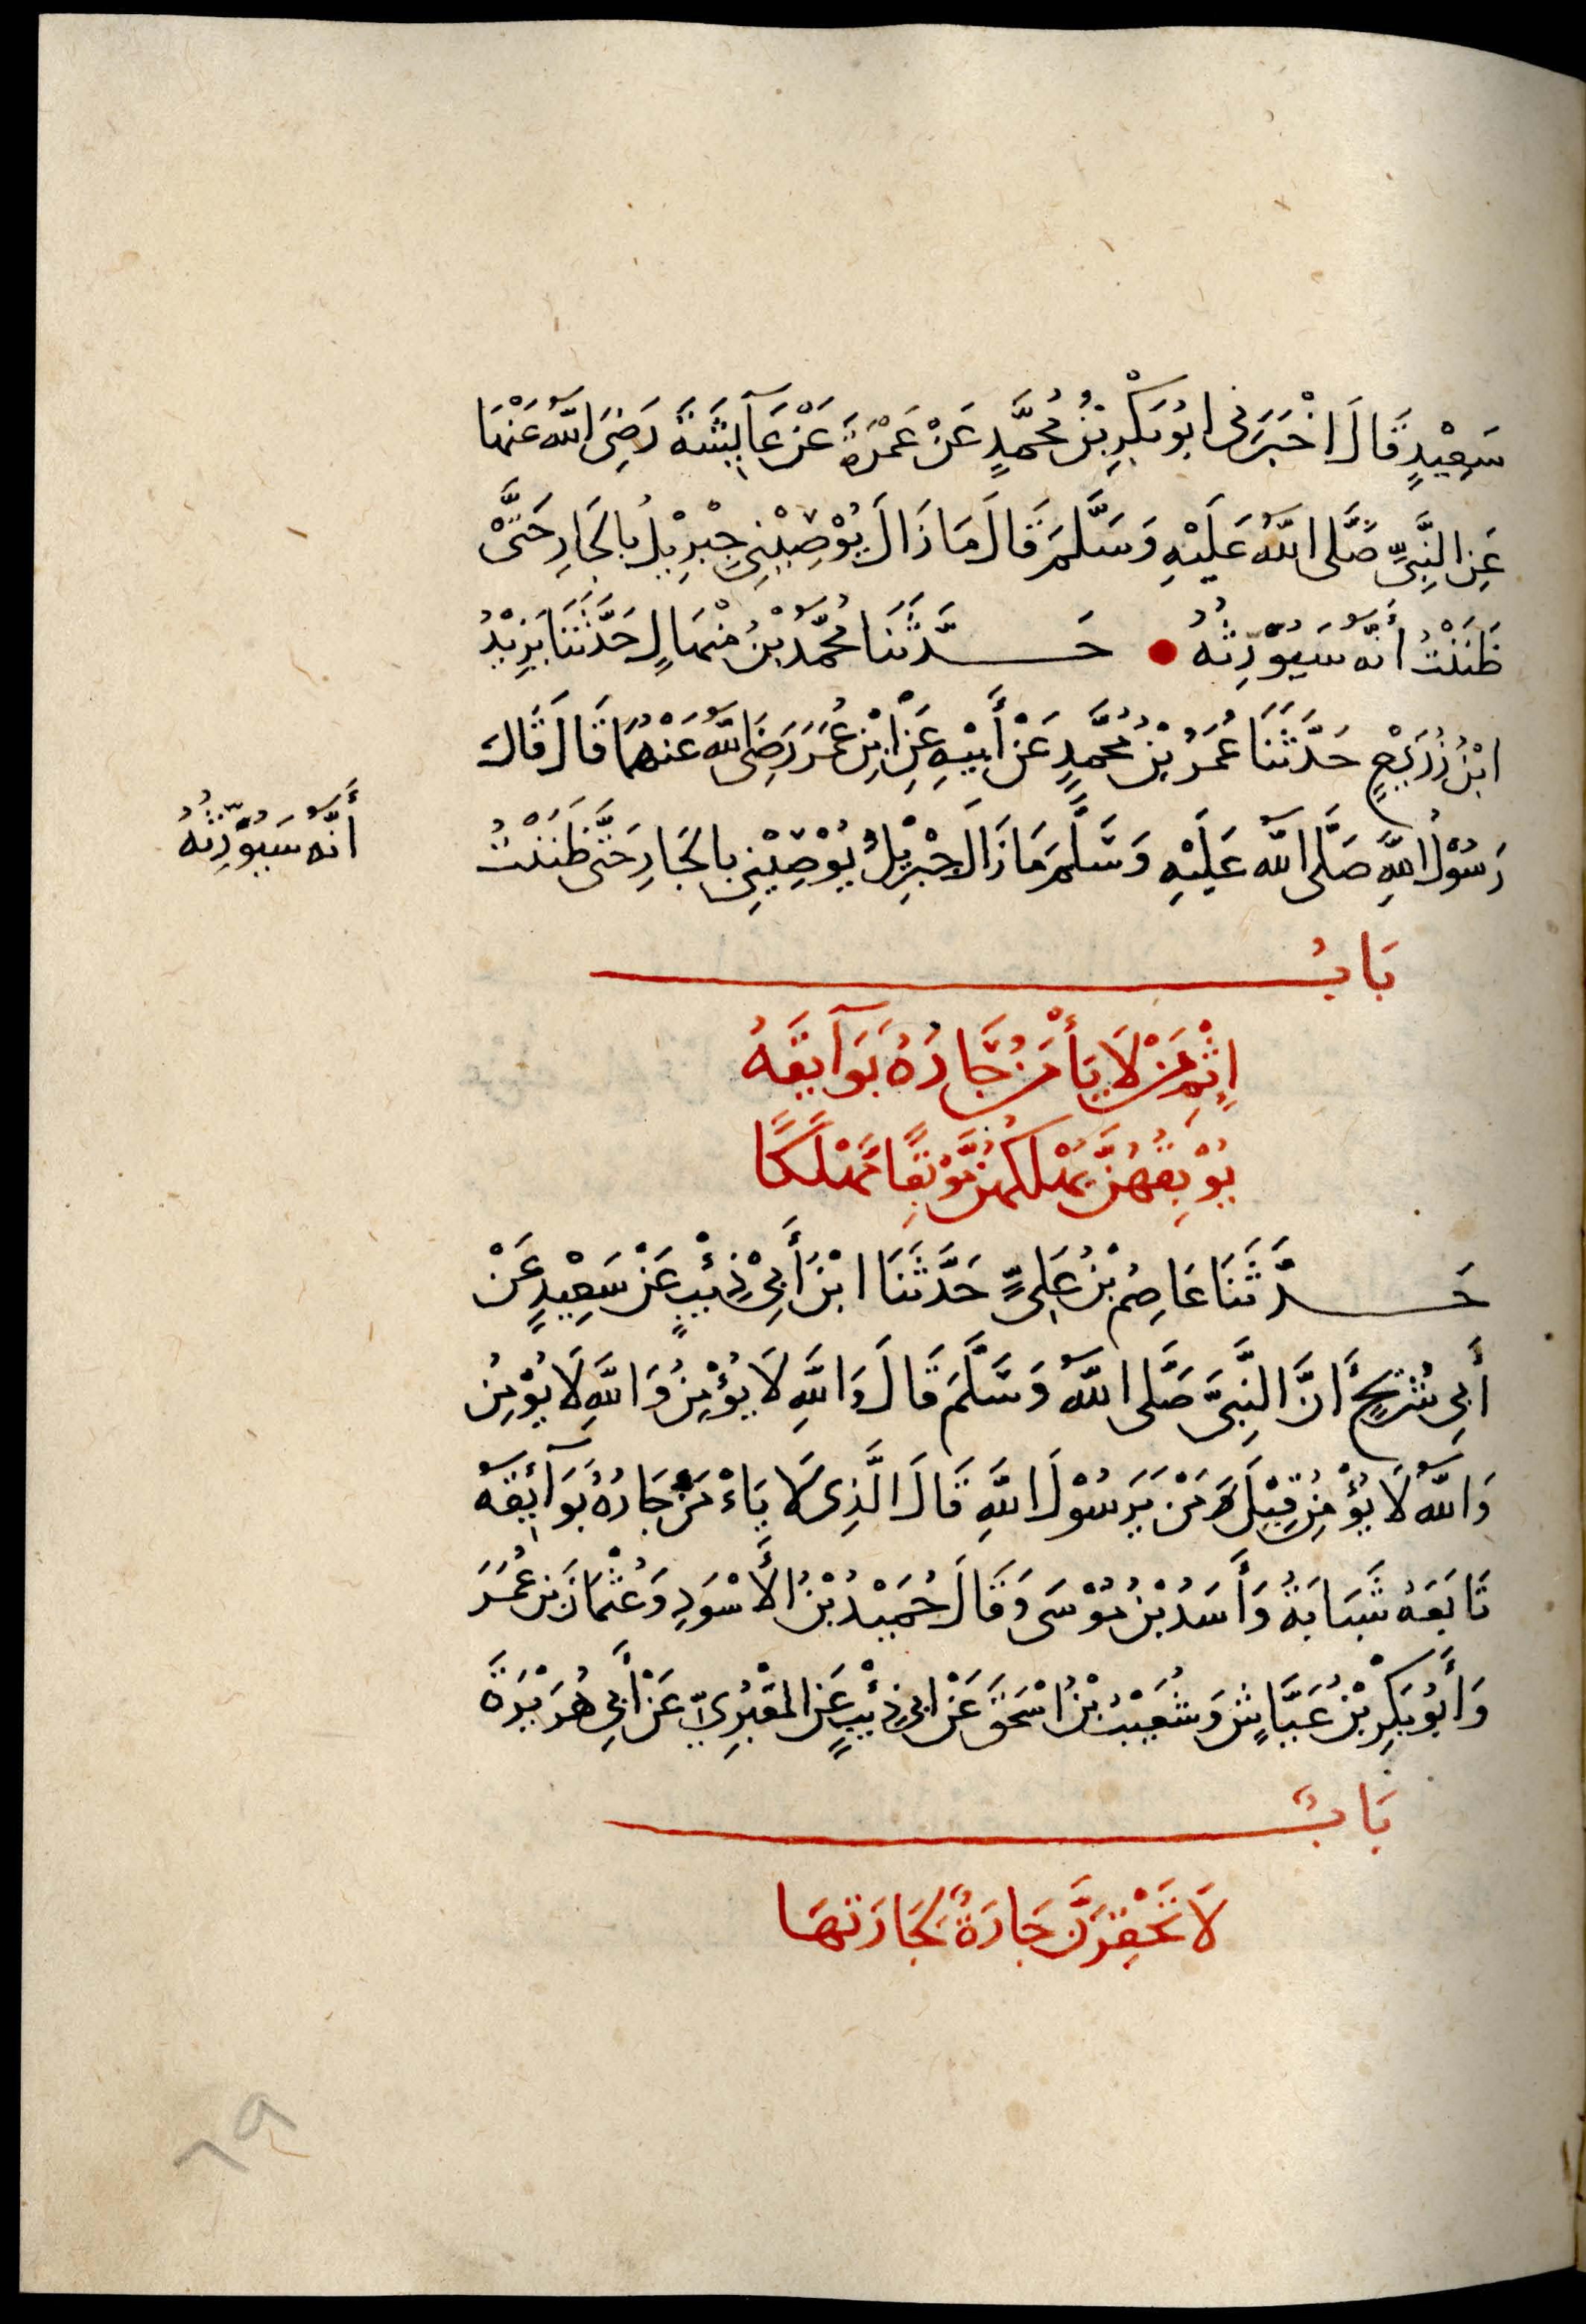 سَعِيْدٍ قَالَ اخْبَرَنِى ابُوبَكْرِ بْنُ مُحَمَّدٍ عَنْ عَمْرَةَ عَنْ عَآئِشَةَ رَضِىَ اللّٰهُ عَنْهَا
عَنِ النَّبِىِّ صَلَّى اللّٰهُ عَلَيْهِ وَسَلَّمَ قَالَ مَا زَالَ يُوْصِيْنِى جِبْرِيْلُ بِالْجَارِ حَتّٰى
ظَنَنْتُ أَنَّهُ سَيُوَرِّثُهُ ● حَدَّثَنَا مُحَمَّدُ بْنُ مِنْهَالٍ حَدَّثَنَا يَزِيْدُ
ابْنُ زُرَيْعٍ حَدَّثَنَا عُمَرُ بْنُ مُحَمَّدٍ عَنْ أَبِيْهِ عَنِ ابْنِ عُمَرَ رَضِىَ اللّٰهُ عَنْهُمَا قَالَ قَالَ
رَسُوْلُ اللّٰهِ صَلَّى اللّٰهُ عَلَيْهِ وَسَلَّمَ مَا زَالَ جِبْرِيْلُ يُوْصِيْنِى بِالْجَارِ حَتّٰى ظَنَنْتُ
أَنَّهُ سَيُوَرِّثُهُ
بَابُ
اِثْمِ مَنْ لَا يَأْمَنُ جَارُهُ بَوَآيِقَهُ
يُوْبِقْهُنَّ يُهْلِكْهُنَّ مَوْبِقًا مَهْلَكًا
حَدَّثَنَا عَاصِمُ بْنُ عَلِىٍّ حَدَّثَنَا ابْنُ أَبِىْ ذِئْبٍ عَنْ سَعِيْدٍ عَنْ
أَبِى شُرَيْحٍ أَنَّ النَّبِىَّ صَلَّى اللّٰهُ وَسَلَّمَ قَالَ وَاللّٰهِ لَا يُؤْمِنُ وَاللّٰهِ لَا يُؤْمِنُ
وَاللّٰهِ لَا يُؤْمِنُ قِيْلَ وَمَنْ يَرَسُوْلَ اللّٰهِ قَالَ الَّذِى لَا يَاءْمَنُ جَارُهُ بَوَآئِقَهُ
تَابَعَهُ شَبَابَةُ وَأَسَدُ بْنُ مُوْسَى وَقَالَ حُمَيْدُ بْنُ الْأَسْوَدِ وَعُثْمَانُ بْنُ عُمَرَ
وَأَبُوبَكْرِ بْنُ عَيَّاشٍ وَشُعَيْبُ بْنُ اسْحٰقَ عَنْ ابِى ذِئْبٍ عَنِ الْمَقْبُرِىِّ عَنْ أَبِى هُرَيْرَةَ
بَابٌ
لَا تَحْقِرَنَّ جَارَةٌ لِجَارَتِهَا
٦٩